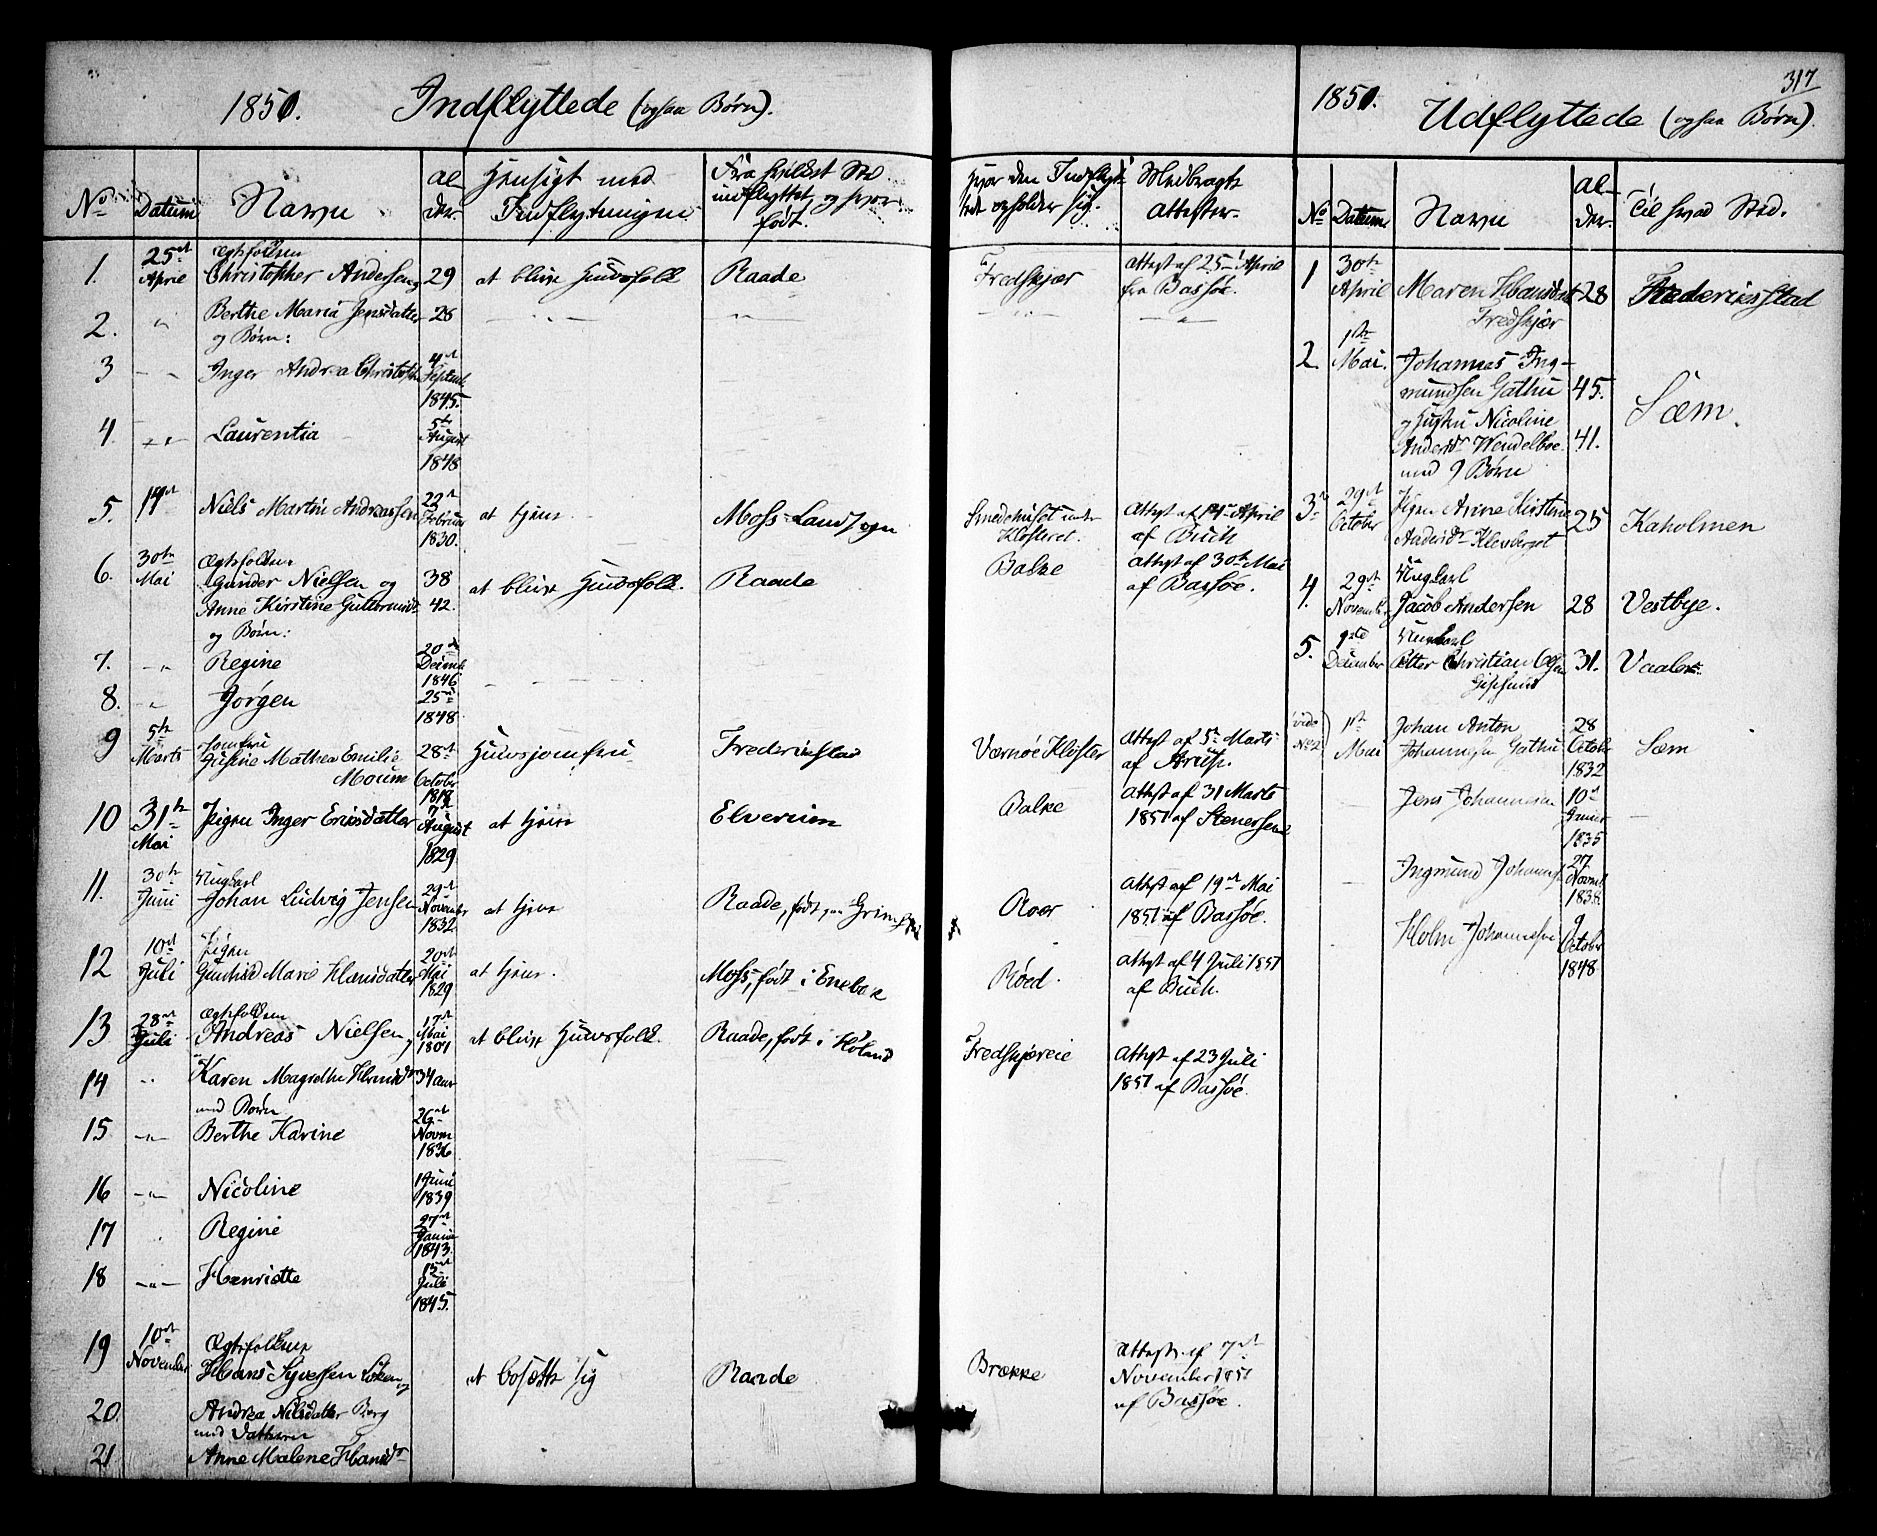 317
1851. Indflyttede (ogsaa Børn).
No Datum Navn Alder Hensigt med Indflytningen Fra hvilket Sted indflyttet og hvor født. Hvor den Indflyttede opholder sig. Medbragte Attester.
1. 25de April Ægtefolkene Christopher Andersen og 29 at blive Huusfolk Raade Fredskjær Attest af 25de April fra Bassøe.
2. " Berthe Maria Jensdatter og Børn: 28 " " "
3 " Inger Andrea Christoph 4de Septemb 1845.
4. " Laurentia 5te August 1848
5. 14de Niels Martin Andreassen 22de Februar 1830. at tjene Moss Landsogn Smedehuset under Klosteret. Attest af 14de April af Buch
6. 30te Mai Ægtefolkene: Gunder Nielsen og 38 at blive Huusfolk. Raade Balke Attest af 30te Mai af Bassøe.
Anne Kirstine Guttormsd 42.
og Børn:
7. " Regine 20de Decemb 1846
8. " Jørgen 25de 1848
9 5te Marts Jomfru Gusine Mathea Emilie Morum 28de October 1818 Huusjomfru Frederikstad Værnøe Kloster Attest af 5te Marts af Arup.
10 31te Mai Pigen Inger Ericsdatter 7de August 1829 at tjene Elverum Balke Attest af 31 Marts 1851 af Stenersen
11. 30te Juni Ungkarl Johan Ludvig Jensen 29de November 1832 at tjene Raade, født paa Roer Attest af 19de Mai 1851 af Bassøe.
12 10de Juli Pigen Gunhild Marie Hansdatter 20de Mai 1829 at tjene. Moss, født i Enebak Røed. Attest af 4 Juli 1851 af Buch.
13 28de Juli Ægtefolkene Andreas Nielsen, 17de Mai 1801 at blive Huusfolk. Raade, født i Høland Fredskjøreie Attest af 23 Juli 1851 af Bassøe.
14 " Karen Magrethe 34 aar
med Børn
15 " Berthe Karine 26de Novm 1836
16 " Nicoline 1 Juni 1839
17 " Regine 27de Januar 1843.
18 " Henriette 12te Juli 1845.
19 10de November Ægtefolkene Hans Syversen og at bosætte sig Raade Brække Attest af 7de November 1851 af Bassøe.
20. Andrea Nilsdatter Berg
med Datteren
21 Anne Malene Hansdr
1851. Udflyttede (ogsaa Børn).
No Datum Navn Alder Til hvad Sted.
1 30te April Maren Hansdatt Fredskjær 28 Frederiksstad
2 1ste Mai. Johannes Ingmundsen Gathu 45. Sæm.
og Hustru Nicoline Andersd Wendelboe 41.
med 9 Børn
3 29de October Pigen Anne Kirstine Andersdr Klevberget 25 Kaholmen
4. 29de November Ungkarl Jacob Andersen 28 Vestbye.
5. 1ste December Ungkarl Petter Christian 31. Vaaler.
vide No 2 1ste Mai Johan Anton Johannesen Gathu 28 October 1832 Sæm
Jens Johannesen 10de 1835
Ingmund Johannes 27 Novemb 1838
Holm Johannesen 9 October 1848